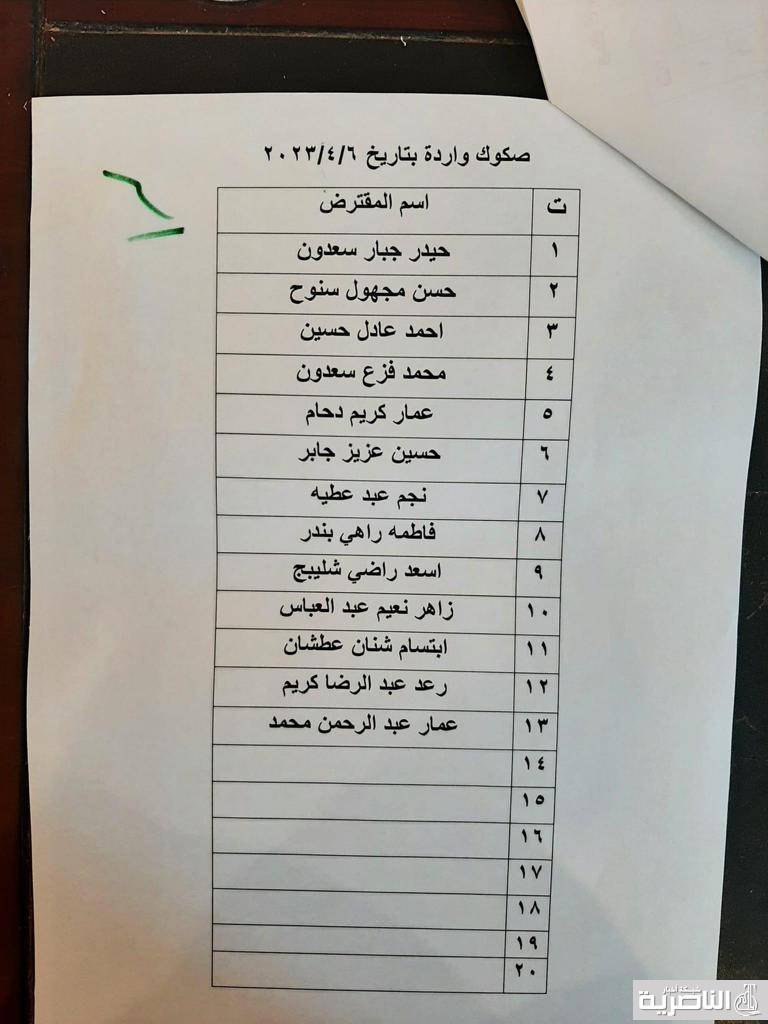 صكوك واردة بتاريخ ٢٠٢٣/٤/٦
ت اسم المقترض
١ حيدر جبار سعدون
٢ حسن مجهول سنوح
٣ احمد عادل حسين
٤ محمد فزع سعدون
٥ عمار كريم دحام
٦ حسين عزيز جابر
٧ نجم عبد عطيه
٨ فاطمه راهي بندر
٩ اسعد راضي شليبج
١٠ زاهر نعيم عبد العباس
١١ ابتسام شنان عطشان
١٢ رعد عبد الرضا كريم
١٣ عمار عبد الرحمن محمد
١٤
١٥
١٦
١٧
١٨
١٩
٢٠
شبكة أخبار
الناصرية